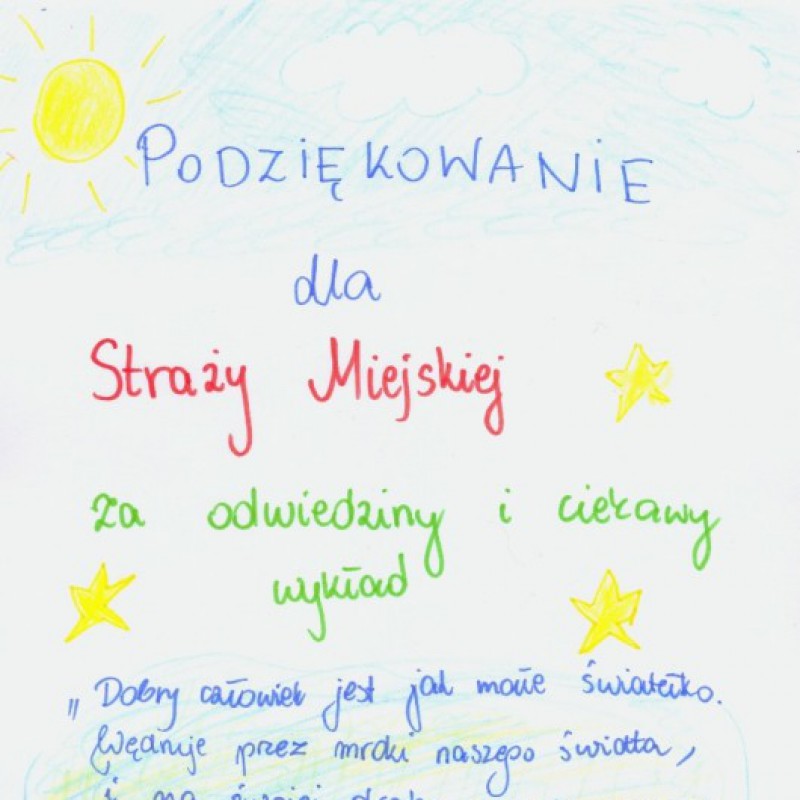 PODZIĘKOWANIE
dla
Straży Miejskiej
za odwiedziny i ciekawy
wykład
„Dobry człowiek jest jak małe światełko.
Wędruje przez mroki naszego świata,
i na swojej